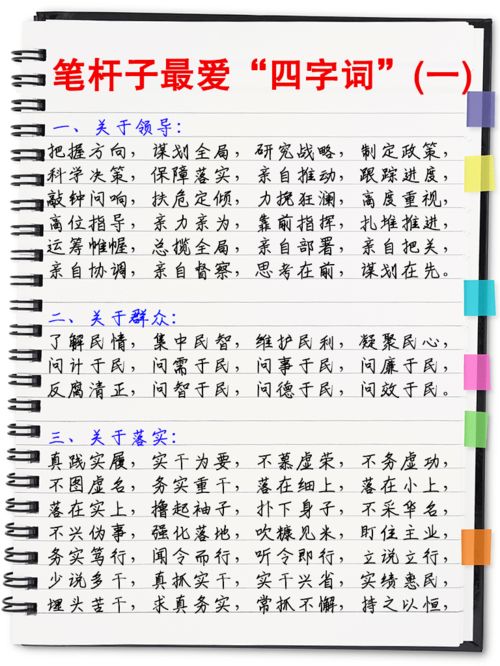 笔杆子最爱“四字词”(一)
一、关于领导:
把握方向，谋划全局，研究战略，制定政策，
科学决策，保障落实，亲自推动，跟踪进度，
敲钟问响，扶危定倾，力挽狂澜，高度重视，
高位指导，亲力亲为，靠前指挥，扎堆推进，
运筹帷幄，总揽全局，亲自部署，亲自把关，
亲自协调，亲自督察，思考在前，谋划在先。
二、关于群众:
了解民情，集中民智，维护民利，凝聚民心，
问计于民，问需于民，问事于民，问廉于民，
反腐清正，问智于民，问德于民，问效于民。
三、关于落实:
真践实履，实干为要，不慕虚荣，不务虚功，
不图虚名，务实重干，落在细上，落在小上，
落在实上，撸起袖子，扑下身子，不采华名，
不兴伪事，强化落地，吹糠见米，盯住主业，
务实笃行，闻令而行，听令即行，立说立行，
少说多干，真抓实干，实干兴省，实绩惠民，
埋头苦干，求真务实，常抓不懈，持之以恒，